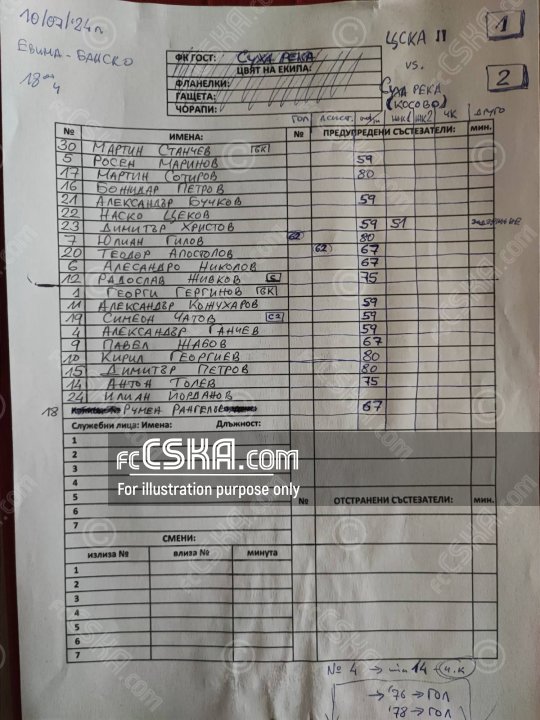 10/07/24г.
ЕВИДА - БАНСКО
18 00 ч
ЦСКА II
vs.
СУХА РЕКА
(КОСОВО)
1
2
ФК ГОСТ: СУХА РЕКА
ЦВЯТ НА ЕКИПА:
ФЛАНЕЛКИ:
ГАЩЕТА:
ЧОРАПИ:
ГОЛ АСИСТ. ЖК1 ЖК2 ЧК ДРУГО
№ ИМЕНА: № ПРЕДУПРЕДЕНИ СЪСТЕЗАТЕЛИ: МИН.
30 МАРТИН СТАНЧЕВ ВК
5 РОСЕН МАРИНОВ 59
17 МАРТИН СОТИРОВ 80
16 БОЖИДАР ПЕТРОВ
21 АЛЕКСАНДЪР БУЧКОВ 59
22 НАСКО ЦЕКОВ
23 ДИМИТЪР ХРИСТОВ 59 51
7 ЮЛИАН ГИЛОВ 62 80
20 ТЕОДОР АПОСТОЛОВ 62 67
6 АЛЕСАНДРО НИКОЛОВ 67
12 РАДОСЛАВ ЖИВКОВ C 75
1 ГЕОРГИ ГЕРГИНОВ ВК
11 АЛЕКСАНДЪР КОЖУХАРОВ 59
19 СИМЕОН ЧАТОВ C2 59
4 АЛЕКСАНДЪР ГАНЧЕВ 59
9 ПАВЕЛ ЖАБОВ 67
10 КИРИЛ ГЕОРГИЕВ 80
15 ДИМИТЪР ПЕТРОВ 80
14 АНТОН ТОЛЕВ 75
24 ИЛИАН ЙОРДАНОВ
18 РУМЕН РАНГЕЛОВ 67
Служебни лица: Имена: Длъжност:
1
2
3
4
5
6
7
№ ОТСТРАНЕНИ СЪСТЕЗАТЕЛИ: МИН.
СМЕНИ:
излиза № влиза № минута
1
2
3
4
5
6
7
№ 4 → min 14 → Ч.К
→ '76 → ГОЛ
'78 → ГОЛ
fcCSKA.com
For illustration purpose only